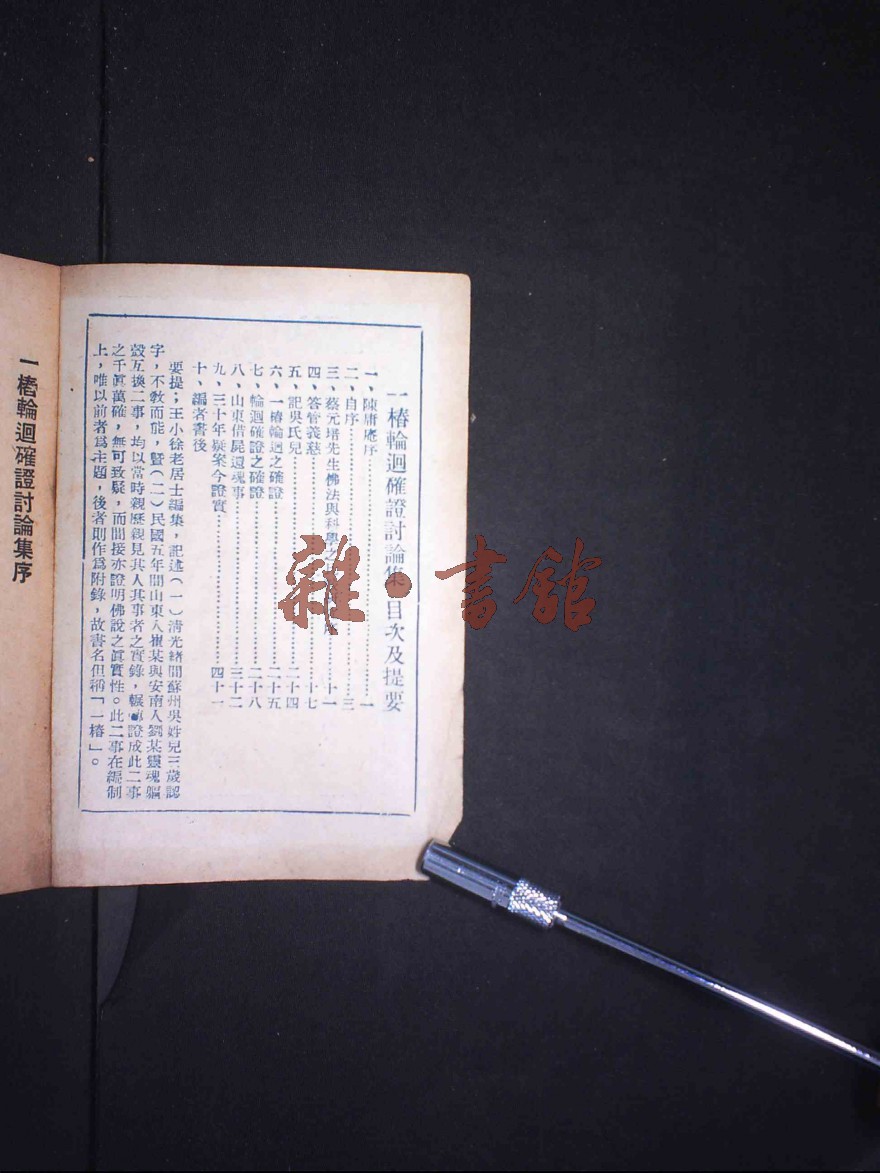 一樁輪迴確證討論集目次及提要
一、陳庸庵序……一
二、自序……三
三、蔡元培先生佛法與科學之……十一
四、答管義慈……十七
五、記吳氏兒……二十四
六、一樁輪迴之確證……二十五
七、輪迴確證之確證……二十八
八、山東借屍還魂事……三十二
九、三十年疑案今證實……四十一
十、編者書後
要提；王小徐老居士編集，記述（一）清光緒間蘇州吳姓兒三歲認
字，不教而能，暨（二）民國五年間山東人崔某與安南人劉某靈魂軀
殼互換二事，均以當時親歷親見其人其事者之實錄，輾轉證成此二事
之千眞萬確，無可致疑，而間接亦證明佛說之眞實性。此二事在編制
上，唯以前者爲主題，後者則作爲附錄，故書名但稱「一樁」。
一樁輪迴確證討論集序
雜·書館